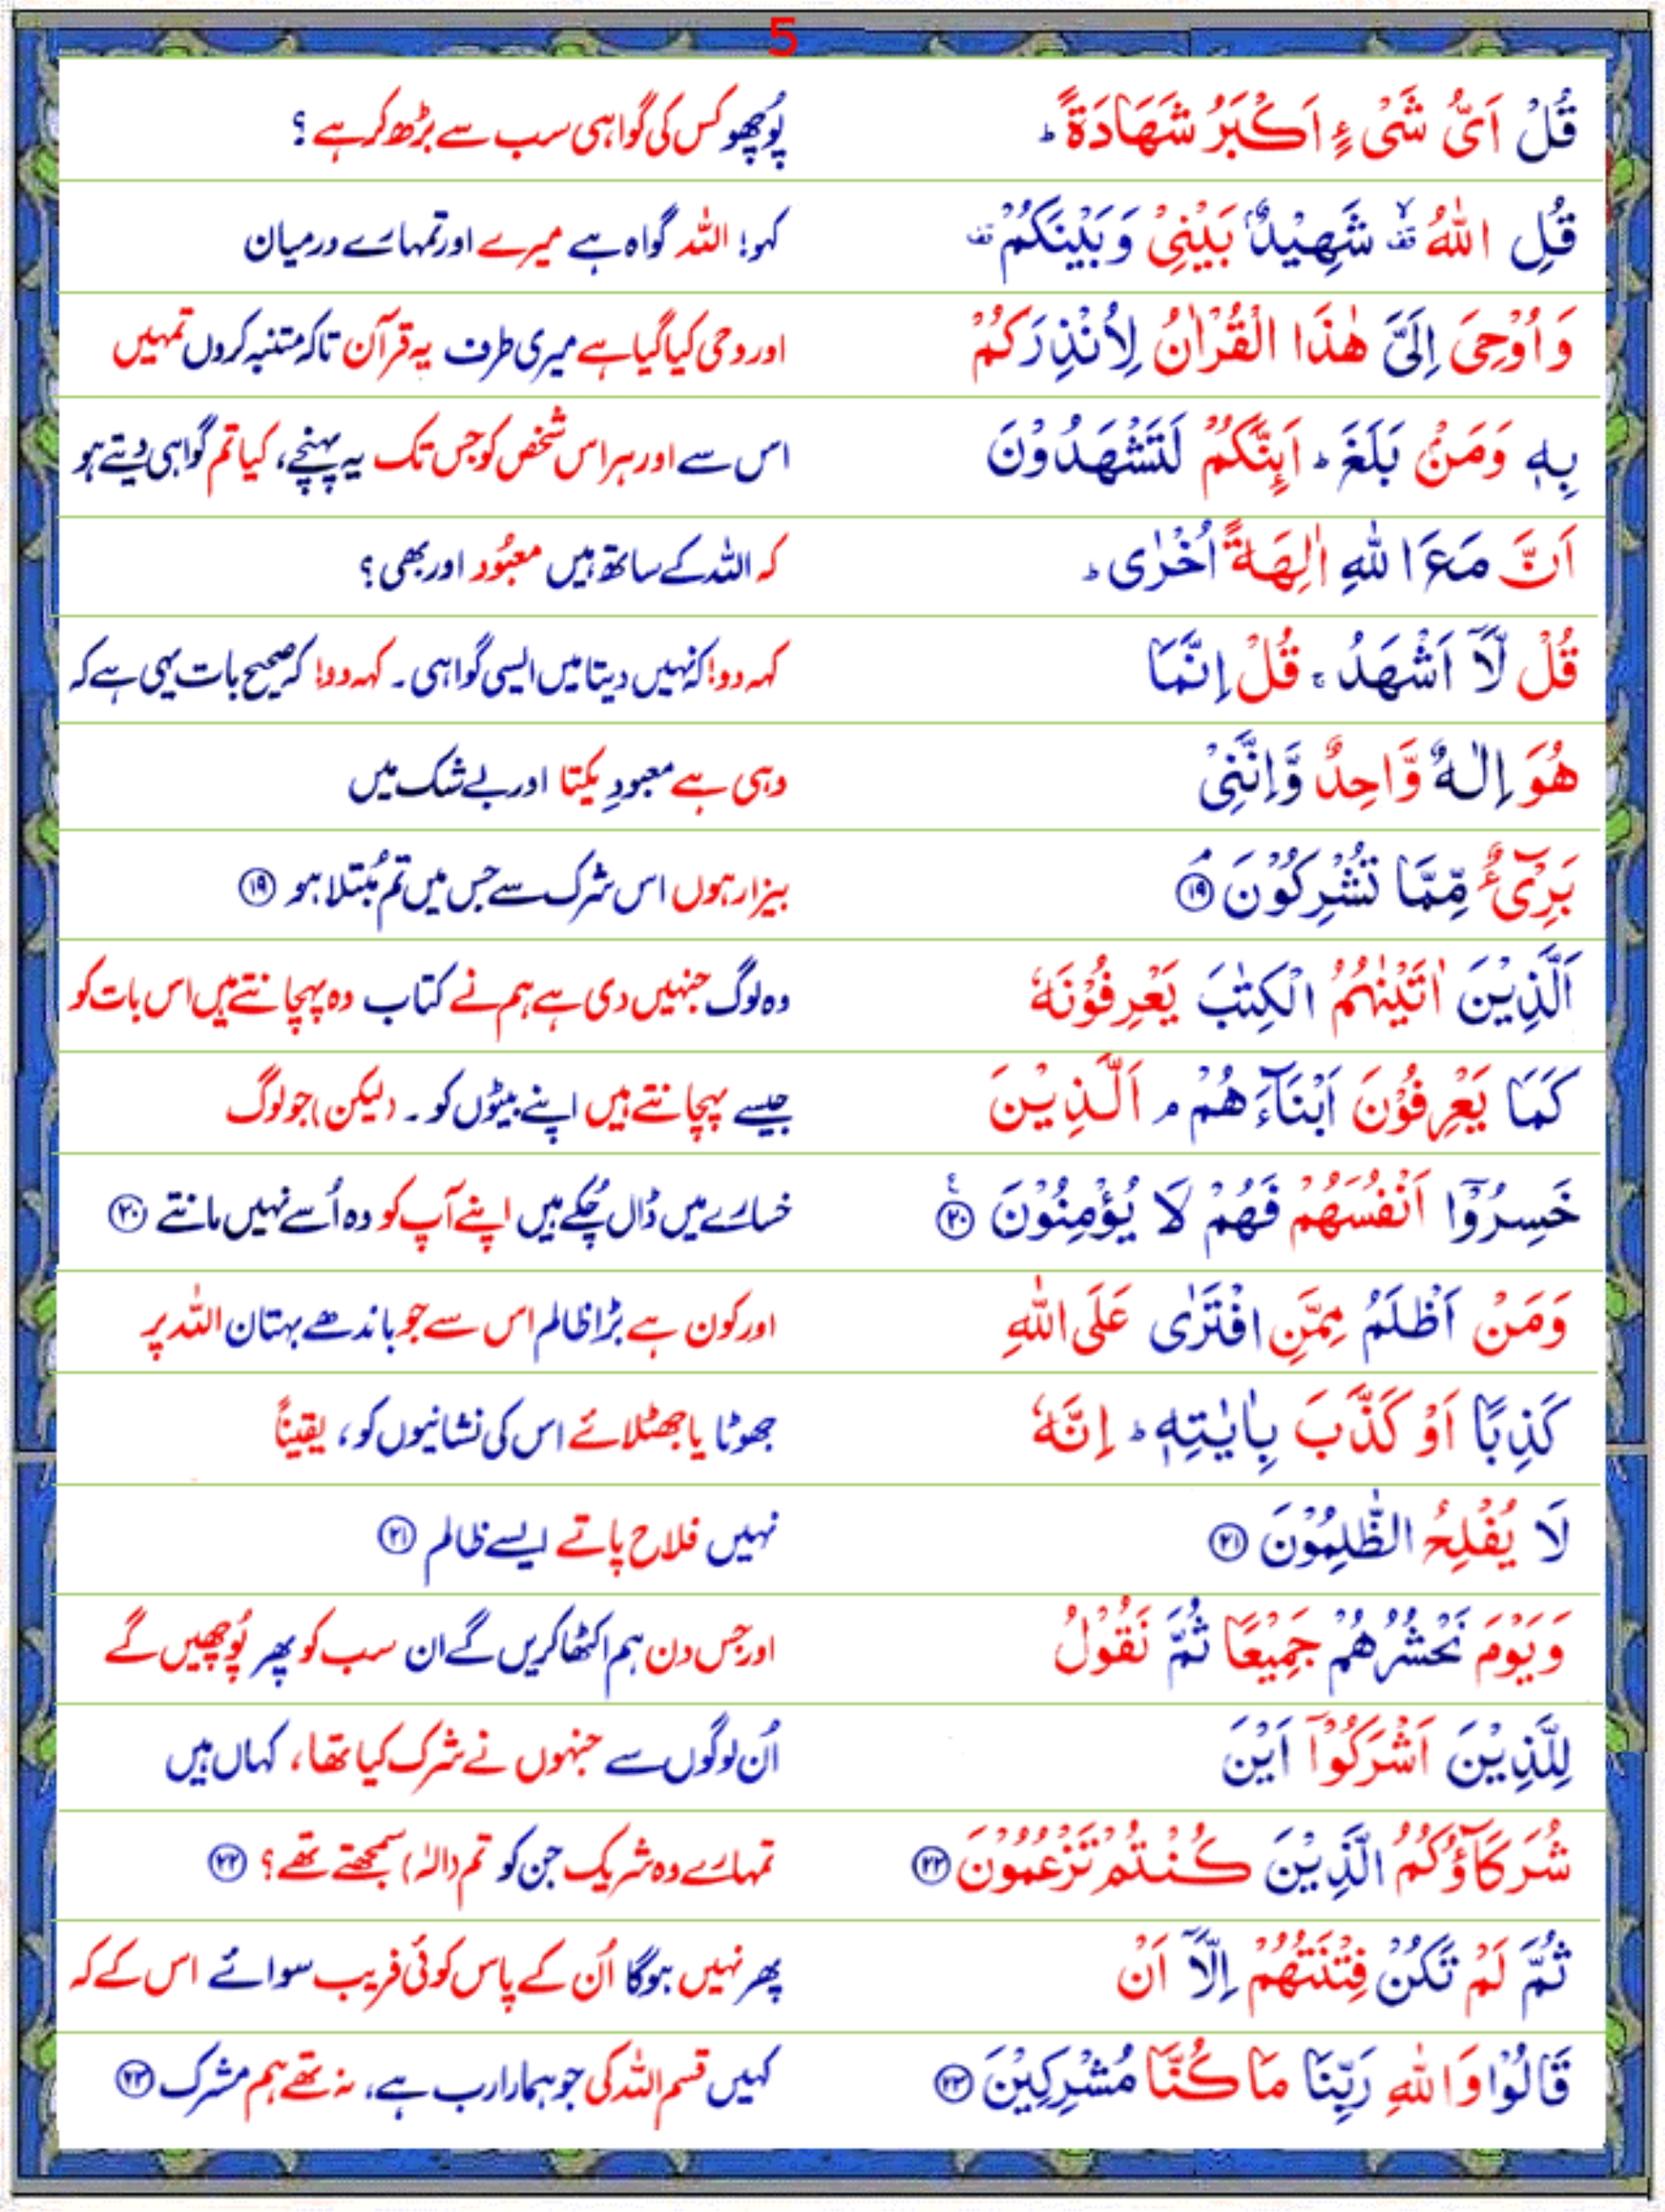 5
قُلْ اَیُّ شَیْءٍ اَكْبَرُ شَهَادَةً ؕ پُوچھو کس کی گواہی سب سے بڑھ کر ہے ؟
قُلِ اللّٰهُ ۙ۫ شَهِیْدٌۢ بَیْنِیْ وَبَیْنَكُمْ ۫ کہو! اللہ گواہ ہے میرے اور تمہارے درمیان
وَاُوْحِیَ اِلَیَّ هٰذَا الْقُرْاٰنُ لِاُنْذِرَكُمْ اور وحی کیا گیا ہے میری طرف یہ قرآن تاکہ متنبہ کروں تمہیں
بِهٖ وَمَنْۢ بَلَغَ ؕ اَىِٕنَّكُمْ لَتَشْهَدُوْنَ اس سے اور ہر اس شخص کو جس تک یہ پہنچے، کیا تم گواہی دیتے ہو
اَنَّ مَعَ اللّٰهِ اٰلِهَةً اُخْرٰی ؕ کہ اللہ کے ساتھ ہیں معبُود اور بھی؟
قُلْ لَّاۤ اَشْهَدُ ۚ قُلْ اِنَّمَا کہہ دو! کہ نہیں دیتا میں ایسی گواہی۔ کہہ دو! کہ صحیح بات یہی ہے کہ
هُوَ اِلٰهٌ وَّاحِدٌ وَّاِنَّنِیْ وہی ہے معبودِ یکتا اور بے شک میں
بَرِیْٓءٌ مِّمَّا تُشْرِكُوْنَ ۘ ۱۹ بیزار ہوں اس شرک سے جس میں تم مُبتلا ہو ۱۹
اَلَّذِیْنَ اٰتَیْنٰهُمُ الْكِتٰبَ یَعْرِفُوْنَهٗ وہ لوگ جنہیں دی ہے ہم نے کتاب وہ پہچانتے ہیں اس بات کو
كَمَا یَعْرِفُوْنَ اَبْنَآءَهُمْ ۘ اَلَّذِیْنَ جیسے پہچانتے ہیں اپنے بیٹوں کو۔ (لیکن) جو لوگ
خَسِرُوْۤا اَنْفُسَهُمْ فَهُمْ لَا یُؤْمِنُوْنَ ۲۰ ع خسارے میں ڈال چُکے ہیں اپنے آپ کو وہ اُسے نہیں مانتے ۲۰
وَمَنْ اَظْلَمُ مِمَّنِ افْتَرٰی عَلَی اللّٰهِ اور کون ہے بڑا ظالم اس سے جو باندھے بہتان اللہ پر
كَذِبًا اَوْ كَذَّبَ بِاٰیٰتِهٖ ؕ اِنَّهٗ جھوٹا یا جھٹلائے اس کی نشانیوں کو، یقیناً
لَا یُفْلِحُ الظّٰلِمُوْنَ ۲۱ نہیں فلاح پاتے ایسے ظالم ۲۱
وَیَوْمَ نَحْشُرُهُمْ جَمِیْعًا ثُمَّ نَقُوْلُ اور جس دن ہم اکٹھا کریں گے ان سب کو پھر پُوچھیں گے
لِلَّذِیْنَ اَشْرَكُوْۤا اَیْنَ اُن لوگوں سے جنہوں نے شرک کیا تھا، کہاں ہیں
شُرَكَآؤُكُمُ الَّذِیْنَ كُنْتُمْ تَزْعُمُوْنَ ۲۲ تمہارے وہ شریک جن کو تم (الٰہ) سمجھتے تھے؟ ۲۲
ثُمَّ لَمْ تَكُنْ فِتْنَتُهُمْ اِلَّاۤ اَنْ پھر نہیں ہوگا اُن کے پاس کوئی فریب سوائے اس کے کہ
قَالُوْا وَاللّٰهِ رَبِّنَا مَا كُنَّا مُشْرِكِیْنَ ۲۳ کہیں قسم اللہ کی جو ہمارا رب ہے، نہ تھے ہم مشرک ۲۳